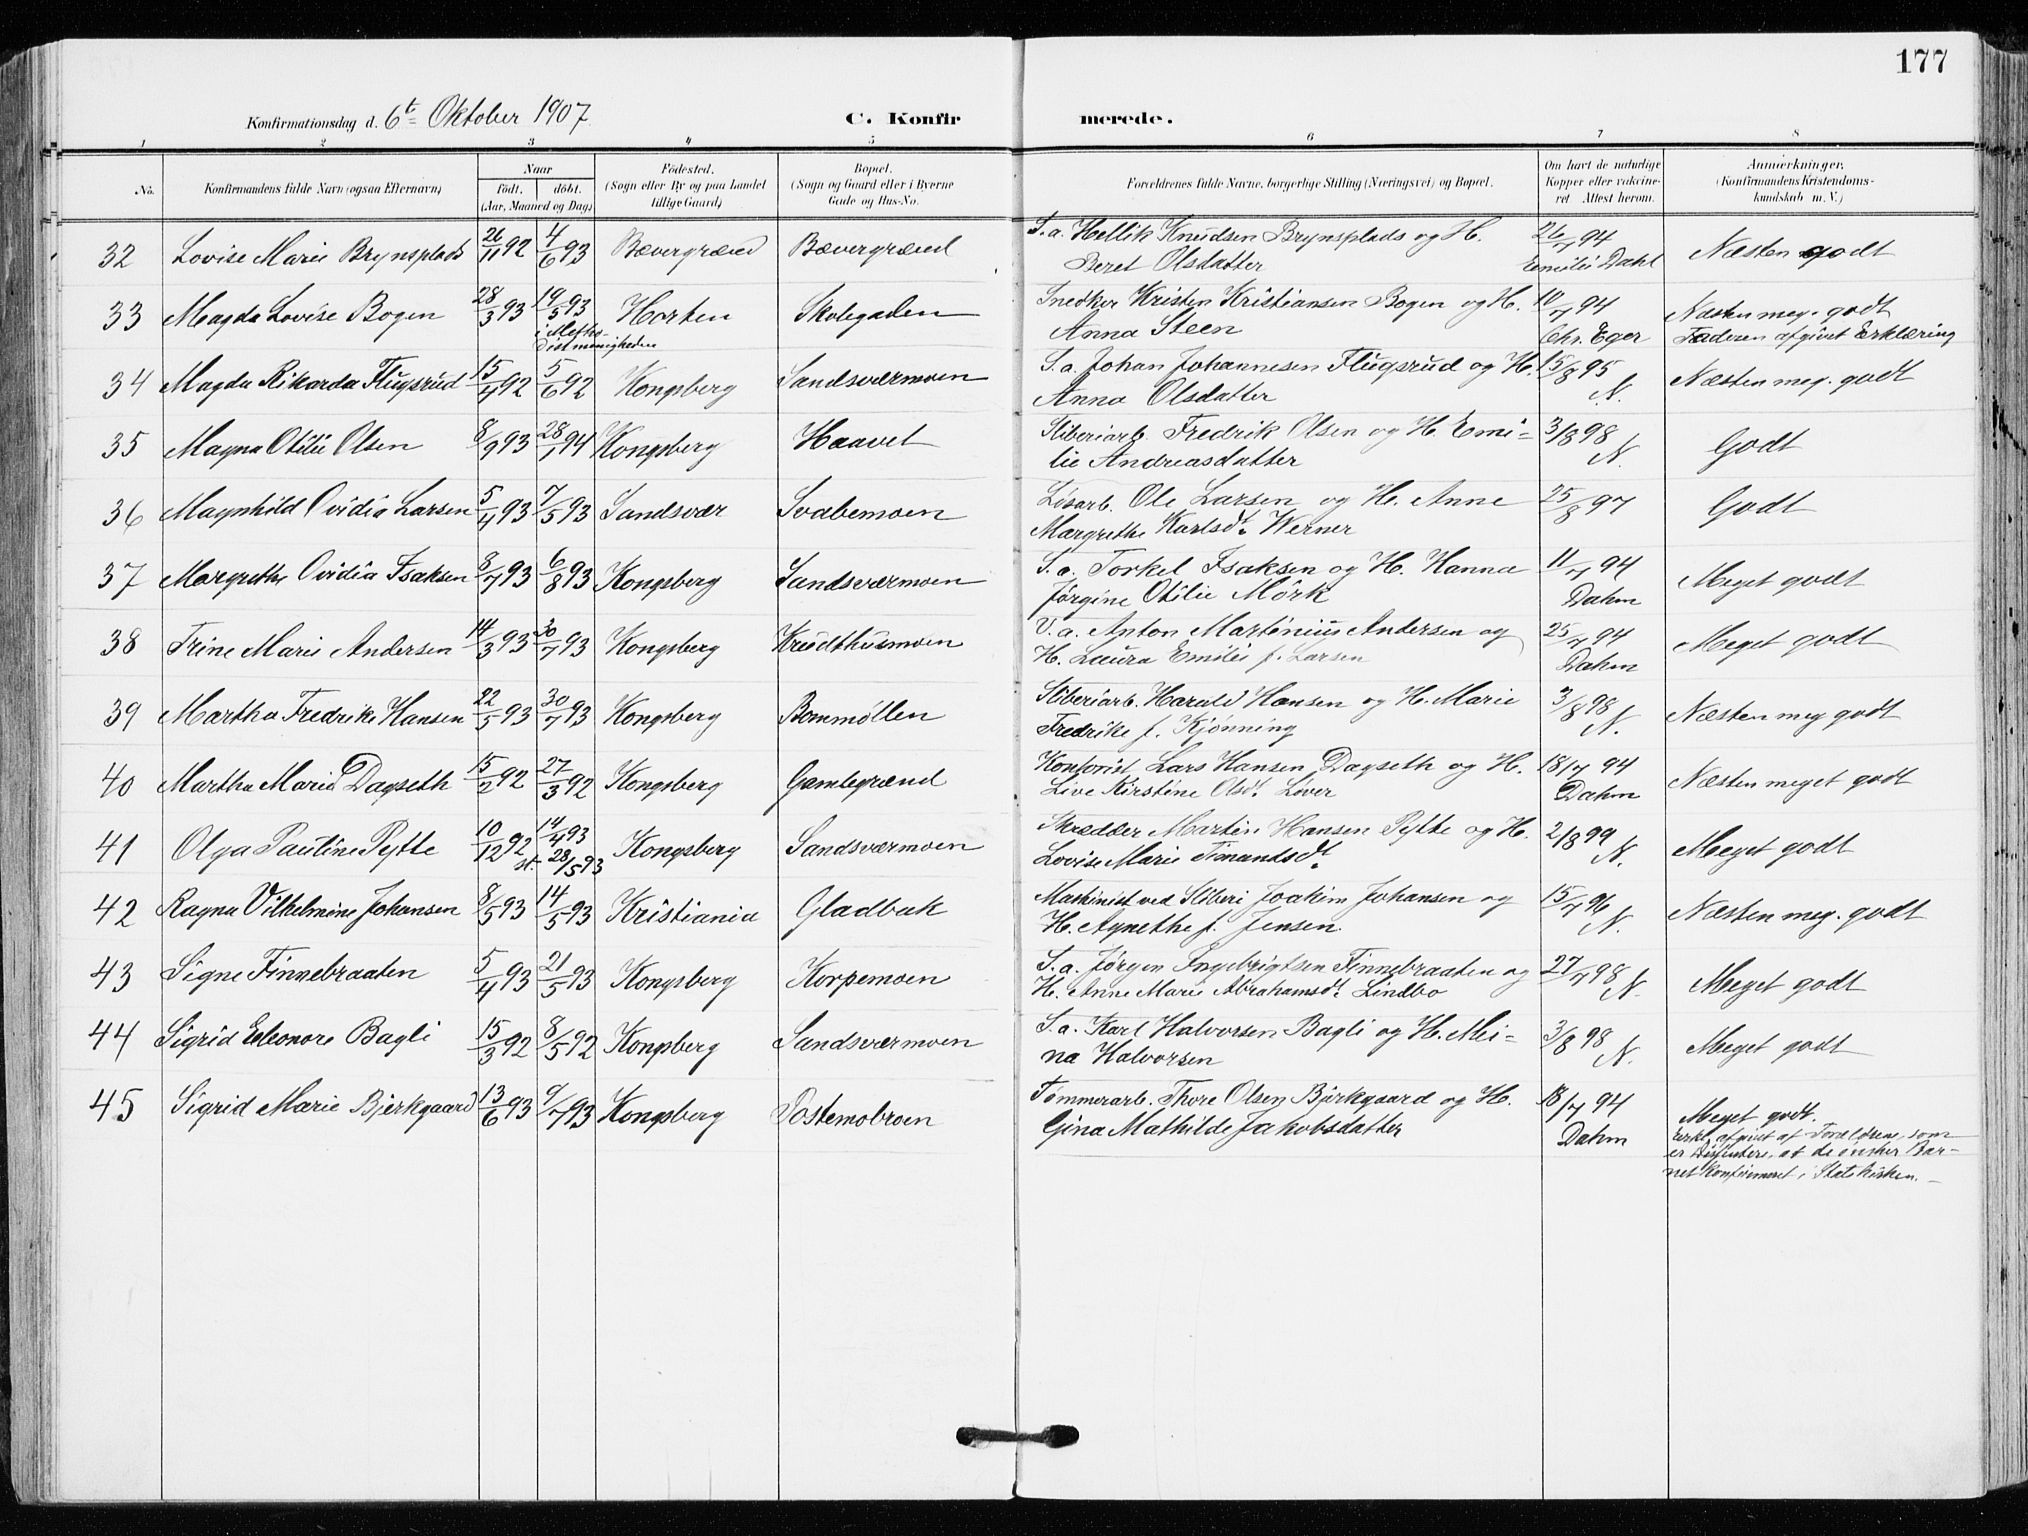 177
Konfirmationsdag d. 6t Oktober 1907
C. Konfirmerede.
1 2 3 4 5 6 7 8
No. Konfirmandens fulde Navn (ogsaa Efternavn) Naar født. døbt. (Aar, Maaned og Dag) Fødested. (Sogn eller By og paa Landet tillige Gaard) Bopæl. (Sogn og Gaard eller i Byerne Gade og Hus-No. Forældrenes fulde Navne, borgerlige Stilling (Næringsvei) og Bopæl. Om havt de naturlige Kopper eller vakcineret. Attest herom. Anmerkninger. (Konfirmandens Kristendomskundskab m. V.)
32 Lovise Marie Brynsplads 26/11 92 4/6 93 Bævergrænd Bævergrænd S.a. Hellik Knudsen Brynsplads og H. 26/7 94 Næsten godt
Beret Olsdatter Emilie Dahl
33 Magda Lovise Bogen 28/3 93 19/5 93 Horten Skolegaden Snedker Kristen Kristiansen Bogen og H. 10/7 94 Næsten meg. godt
i Metho-distmenigheden Anna Steen Chr. Eger Faderen afgivet Erklæring
34 Magda Rikarda Flugsrud 15/4 92 5/6 92 Kongsberg Sandsværmoen S.a. Johan Johannesen Flugsrud og H. 15/8 95 Næsten meg. godt
Anna Olsdatter N.
35 Magna Otilie Olsen 8/9 93 28/1 94 Kongsberg Haavet Stiberiarb. Fredrik Olsen og H. Emi- 3/8 98 Godt
lie Andreasdatter N.
36 Magnhild Ovidia Larsen 5/4 93 7/5 93 Sandsvær Svabemoen Løsarb. Ole Larsen og H. Anne 25/8 97 Godt
Margrethe Karlsdt. Werner
37 Margrethe Ovidia Isaksen 8/7 93 6/8 93 Kongsberg Sandsværmoen S.a. Torkel Isaksen og H. Hanna 11/7 94 Meget godt
Jørgine Otilie Mörk Dahm
38 Trine Marie Andersen 14/3 93 30/7 93 Kongsberg Krudthusmoen V.a. Anton Martinius Andersen og 25/7 94 Meget godt
H. Laura Emilie f. Larsen Dahm
39 Martha Fredrike Hansen 22/5 93 30/7 93 Kongsberg Bommøllen Stiberiarb. Harald Hansen og H. Marie 3/8 98 Næsten meg godt
Fredrike f. Kjønning N.
40 Martha Marie Dagseth 15/2 92 27/3 92 Kongsberg Gamlegrænd Lars Hansen Dagseth og H. 18/7 94 Næsten meget godt
Live Kirstine Olsdt. Löver Dahm
41 Olga Pauline Pytte 10/12 92 14/4 93 Kongsberg Sandsværmoen Skredder Martin Hansen Pytte og H. 2/8 99 Meget godt
st. 28/5 93 Lovise Marie N.
42 Ragna Vilhelmine Johansen 8/5 93 14/5 93 Kristiania Gladbak Maskinist ved Sliberi Joakim Johansen og 15/7 96 Næsten meg. godt
H. Agnethe f. Jensen N.
43 Signe Finnebraaten 5/4 93 21/5 93 Kongsberg Korpemoen S.a. Jørgen Ingebrigtsen Finnebraaten og 27/7 98 Meget godt
H. Anne Marie Abrahamsdt. Lindbo N.
44 Sigrid Eleonore Bagli 15/3 92 8/5 92 Kongsberg Sandsværmoen S.a. Karl Halvorsen Bagli og H. Mei- 3/8 98 Meget godt
na Halvorsen N.
45 Sigrid Marie Bjerkgaard 13/6 93 9/7 93 Kongsberg Postemobroen Tømmerarb. Thore Olsen Bjørkgaard og H. 18/7 94 Meget godt.
Gina Mathilde Jakobsdatter Dahm Erkl. afgivet af Forældrene, som
er Dissentere, at de ønsker Bar-
net konfirmeret i Statskirken.